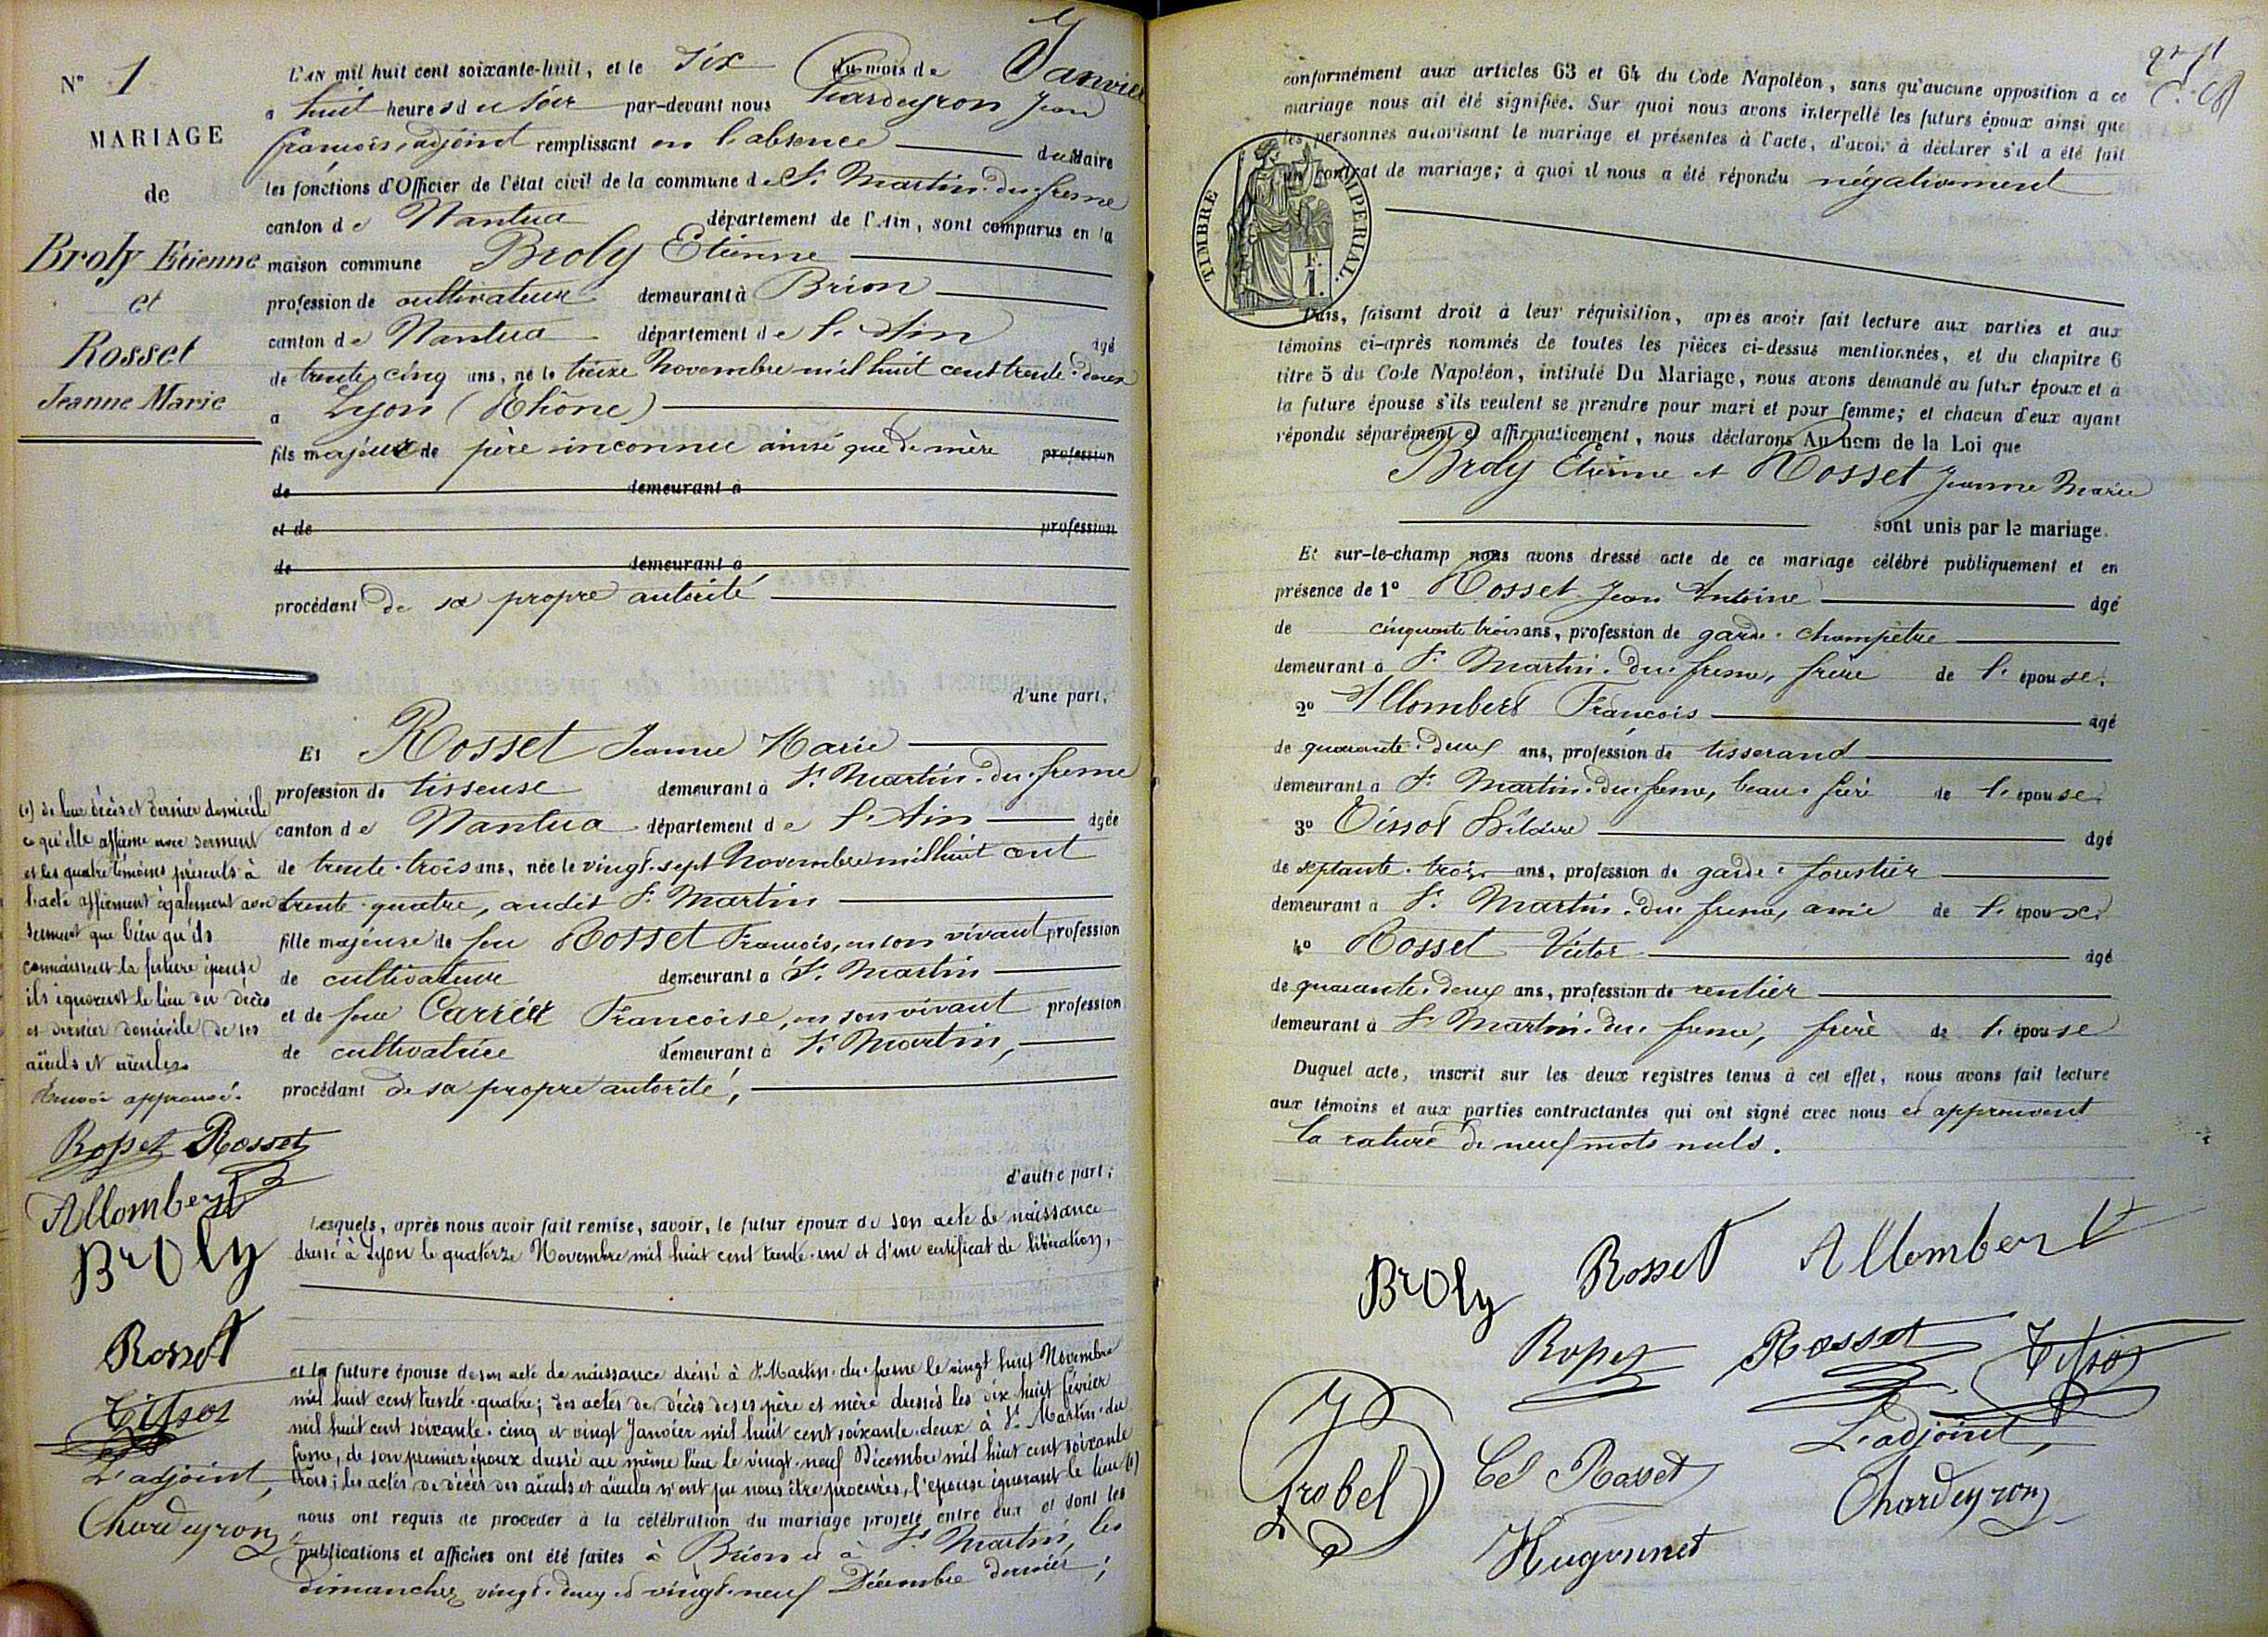 N° 1
MARIAGE
de
Broly Etienne
et
Rosset
Jeanne Marie
L'AN mil huit cent soixante-huit, et le six du mois de Janvier
a huit heures du soir par-devant nous Chardeyron Jean
François, adjoint remplissant en l'absence du Maire
les fonctions d'Officier de l'état civil de la commune de St Martin-du-fresne
canton de Nantua département de l'Ain, sont comparus en la
maison commune Broly Etienne
profession de cultivateur demeurant à Brion
canton de Nantua département de l'Ain agé
de trente cinq ans, né le treize Novembre mil huit cent trente-deux
a Lyon (Rhône)
fils majeur de père inconnu ainsi que de mère profession
de demeurant à
et de profession
de demeurant à
procédant de sa propre autorité
d'une part,
Et Rosset Jeanne Marie
profession de tisseuse demeurant à St Martin-du-fresne
canton de Nantua département de l'Ain agée
de trente-trois ans, née le vingt-sept Novembre mil huit cent
trente-quatre, audit St Martin
fille majeure de feu Rosset François, en son vivant profession
de cultivateur demeurant à St Martin
et de feue Carrier Françoise, en son vivant profession
de cultivatrice demeurant à St Martin,
procédant de sa propre autorité,
d'autre part;
(1) de leur décès et dernier domicile
ce qu'elle affirme avec serment
et les quatre témoins présents à
l'acte affirment également avec
serment que bien qu'ils
connaissent la future épouse
ils ignorent le lieu du décès
et dernier domicile de ses
aïeuls et aïeules.
Renvoi approuvé.
Rosset Rosset
Allombert
Broly
Rosset
Tissot
L'adjoint,
Chardeyron
Lesquels, après nous avoir fait remise, savoir, le futur époux de son acte de naissance
dressé à Lyon le quatorze Novembre mil huit cent trente-un et d'un certificat de libération,
et la future épouse de son acte de naissance dressé à St Martin-du-fresne le vingt huit Novembre
mil huit cent trente-quatre; des actes de décès de ses père et mère dressés les dix huit février
mil huit cent soixante-cinq et vingt Janvier mil huit cent soixante-deux à St Martin-du
fresne, de son premier époux dressé au même lieu le vingt-neuf Décembre mil huit cent soixante
trois; les actes de décès des aïeuls et aïeules n'ont pu nous être procurés, l'épouse ignorant le lieu (1)
nous ont requis de procéder à la célébration du mariage projeté entre eux et dont les
publications et affiches ont été faites à Brion et à St Martin, les
dimanches vingt-deux et vingt-neuf Décembre dernier;
conformément aux articles 63 et 64 du Code Napoléon, sans qu'aucune opposition a ce
mariage nous ait été signifiée. Sur quoi nous avons interpellé les futurs époux ainsi que
les personnes autorisant le mariage et présentes à l'acte, d'avoir à déclarer s'il a été fait
un contrat de mariage; à quoi il nous a été répondu négativement
TIMBRE IMPERIAL.
F.
1.
Puis, faisant droit à leur réquisition, après avoir fait lecture aux parties et aux
témoins ci-après nommés de toutes les pièces ci-dessus mentionnées, et du chapitre 6
titre 5 du Code Napoléon, intitulé Du Mariage, nous avons demandé au futur époux et à
la future épouse s'ils veulent se prendre pour mari et pour femme; et chacun d'eux ayant
répondu séparément et affirmativement, nous déclarons Au nom de la Loi que
Broly Etienne et Rosset Jeanne Marie
sont unis par le mariage.
Et sur-le-champ nous avons dressé acte de ce mariage célébré publiquement et en
présence de 1° Rosset Jean Antoine agé
de cinquante trois ans, profession de garde-champêtre
demeurant à St Martin-du-fresne, frère de l'épouse,
2° Allombert François agé
de quarante-deux ans, profession de tisserand
demeurant à St Martin-du-fresne, beau-frère de l'épouse
3° Tissot Hilaire agé
de septante-trois ans, profession de garde-forestier
demeurant à St Martin-du-fresne, ami de l'épouse
4° Rosset Victor agé
de quarante-deux ans, profession de rentier
demeurant à St Martin-du-fresne, frère de l'épouse
Duquel acte, inscrit sur les deux registres tenus à cet effet, nous avons fait lecture
aux témoins et aux parties contractantes qui ont signé avec nous et approuvent
la rature de neuf mots nuls.
Broly Rosset Allombert
Rosset Rosset Tissot
Jrobel Cel Rosset L'adjoint,
Chardeyron
Hugonnet